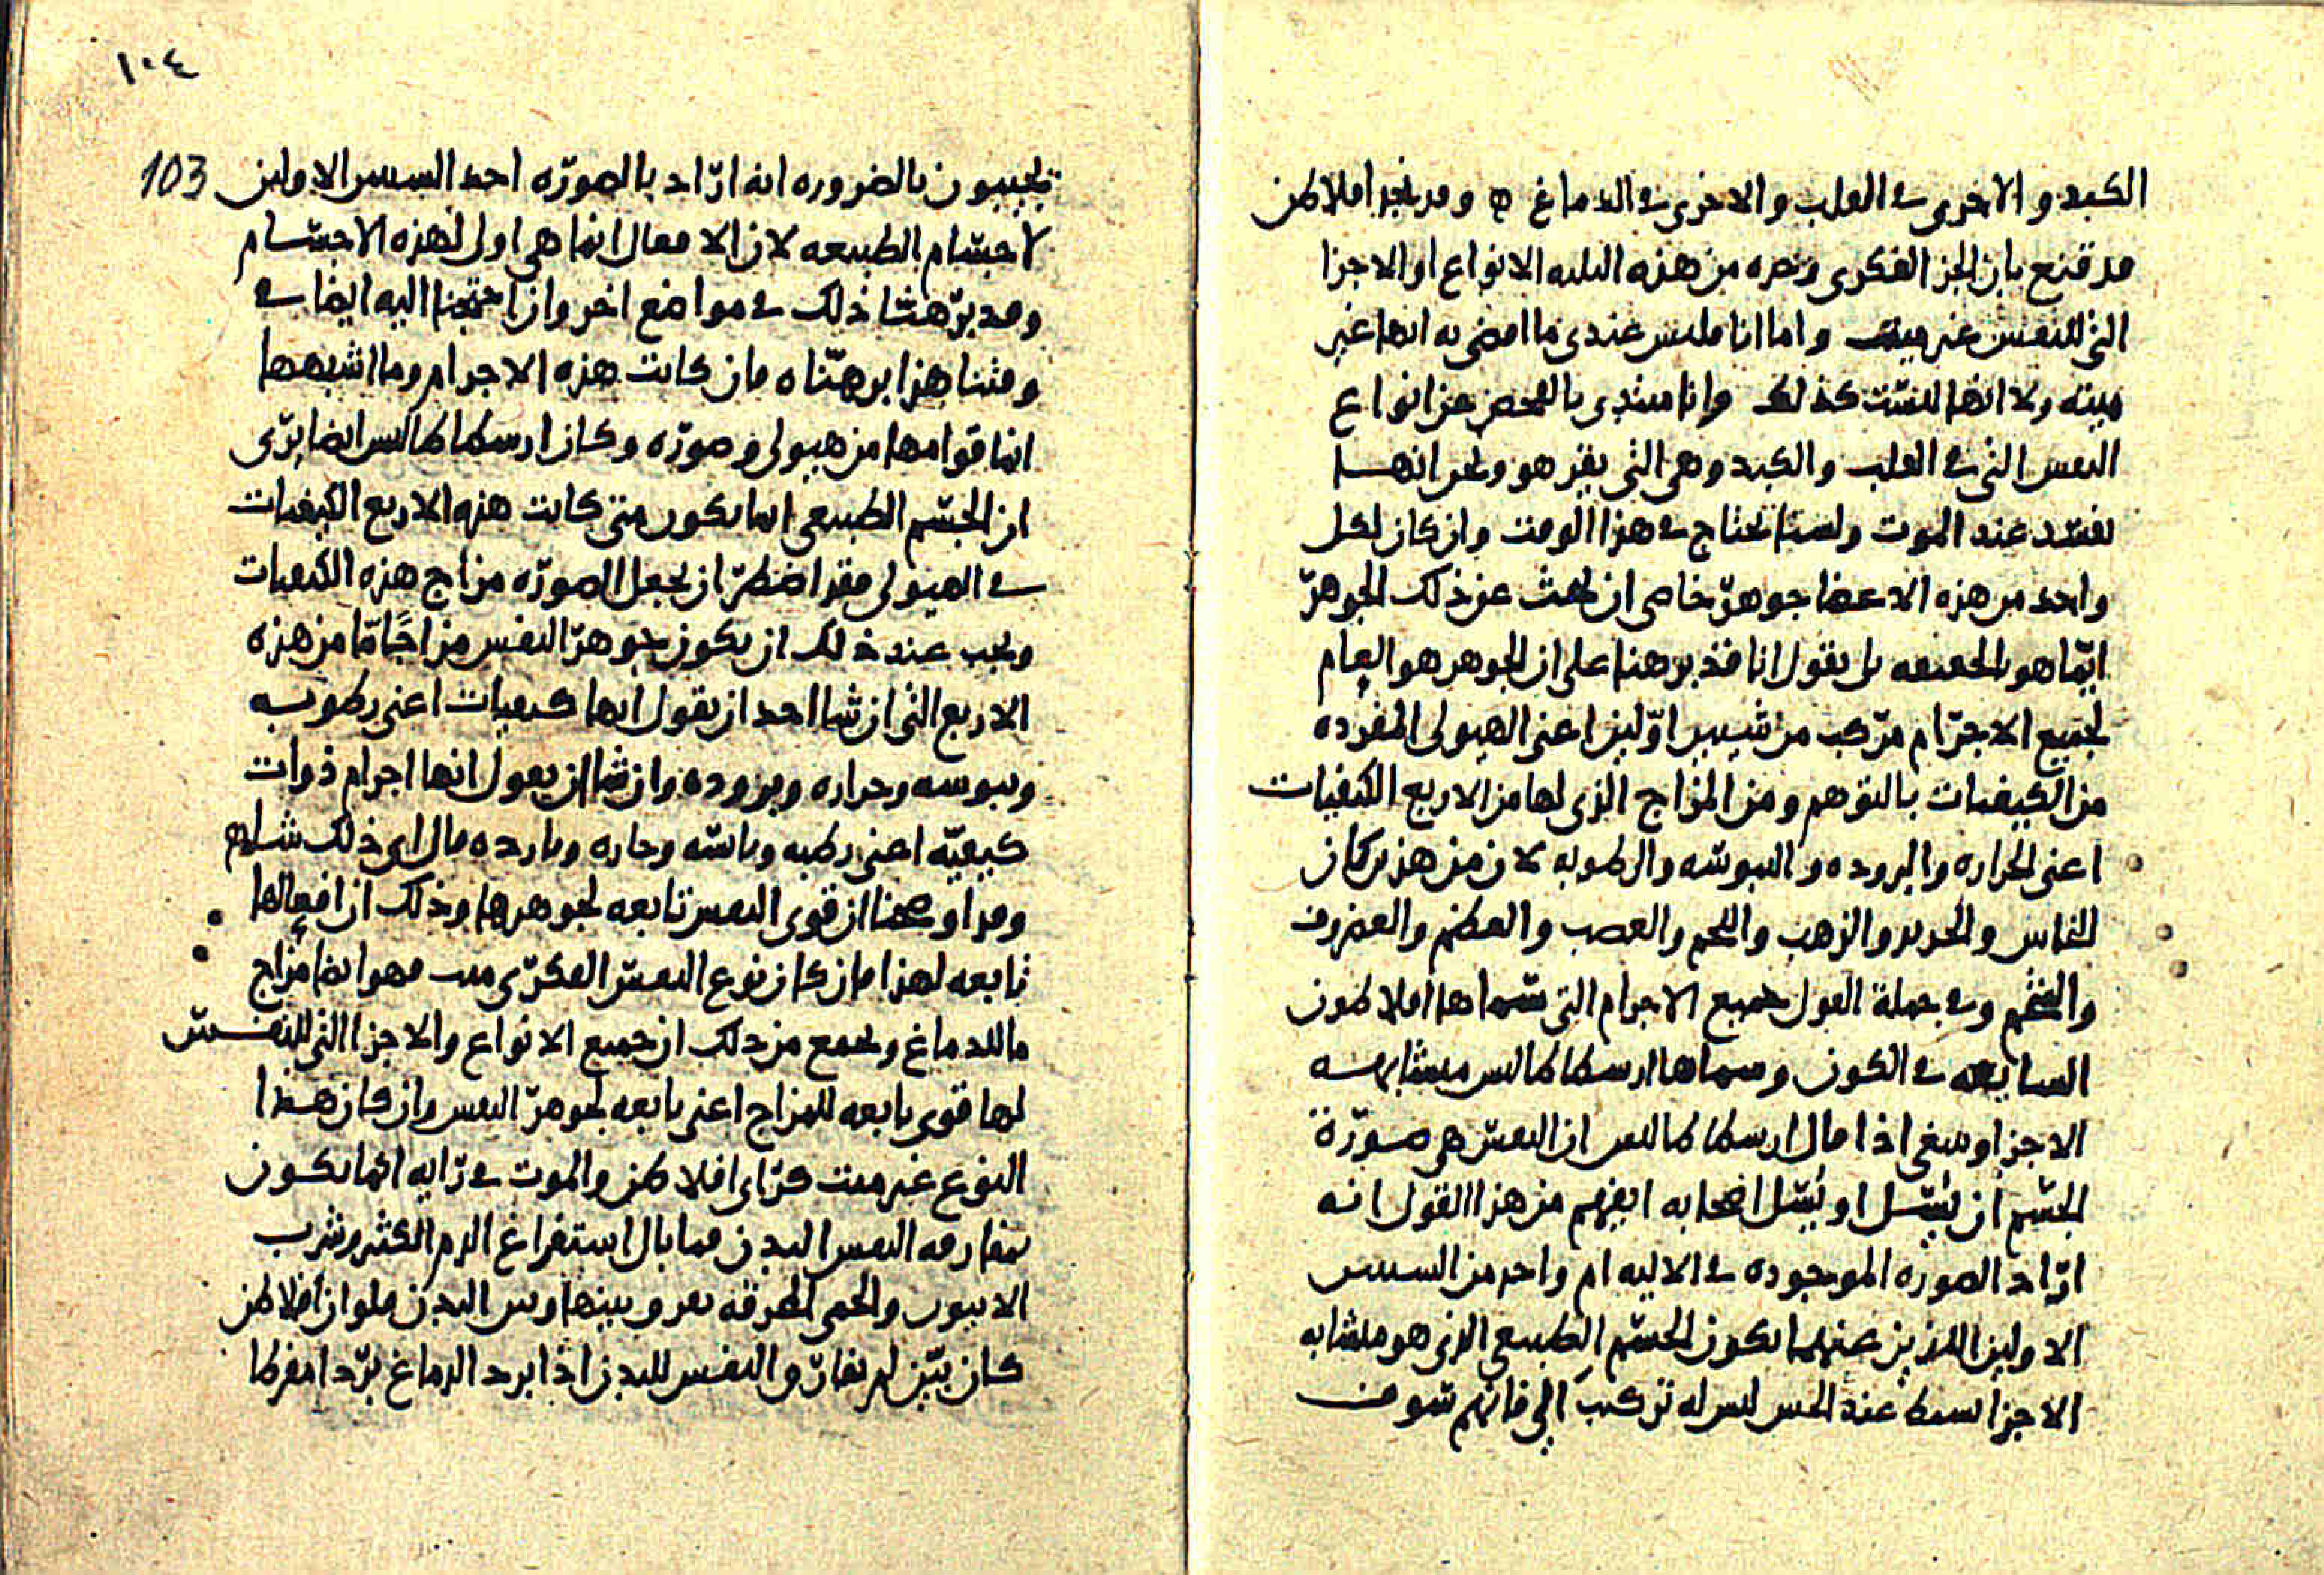 الكبد والاخرى في القلب والاخرى في الدماغ ه وقد نجد افلاطن
قد قنع بان الجز الفكرى وحده من هذه الثلثه الانواع او الاجزا
التى للنفس غير ميت واما انا فليس عندى ما اقضى به انها غير
ميته ولا انها ليست كذلك وانا مبتدى بالفحص عن انواع
النفس التى في القلب والكبد وهى التى يقر هو ونحن انها
تفسد عند الموت ولسنا نحتاج في هذا الوقت وان كان لكل
واحد من هذه الاعضا جوهر خاص ان نبحث عن ذلك الجوهر
ايما هو بالحقيقه بل نقول انا قد برهنا على ان الجوهر هو العام
لجميع الاجرام مركب من شيين اولين اعنى الهيولى المفرده
من الكيفيات بالتوهم ومن المزاج الذى لها من الاربع الكيفيات
اعنى الحراره والبروده واليبوسه والرطوبه لان من هذين كان
النحاس والحديد والذهب واللحم والعصب والعظم والغضروف
والشحم وفي جملة القول جميع الاجرام التى سماها افلاطون
السابقه في الكون وسماها ارسطاطاليس متشابهه
الاجزا وينبغى اذا قال ارسطاطاليس ان النفس هى صورة
الجسم ان يسل او يسل اصحابه ايفهم من هذا القول انه
اراد الصوره الموجوده في الاليه ام واحد من السببين
الاولين اللذين عنهما يكون الجسم الطبيعى الذى هو متشابه
الاجزا بسيط عند الحس ليس له تركيب الي فانهم سوف
١٠٤
103
يجيبون بالضروره انه اراد بالصوره احد السببين الاولين
لاجسام الطبيعه لان الافعال انما هى اولى لهذه الاجسام
وقد برهنا ذلك في مواضع اخر وان احتجنا اليه ايضا في
وقتنا هذا برهناه فان كانت هذه الاجرام وما اشبهها
انما قوامها من هيولى وصوره وكان ارسطاطاليس ايضا يرى
ان الجسم الطبيعى انما يكون متى كانت هذه الاربع الكيفيات
في الهيولى فقد اضطر ان يجعل الصوره مزاج هذه الكيفيات
ويجب عند ذلك ان يكون جوهر النفس مزاجًا ما من هذه
الاربع التى ان شا احد ان يقول انها كيفيات اعنى رطوبه
ويبوسه وحراره وبروده وان شا ان يقول انها اجرام ذوات
كيفية اعنى رطبه ويابسه وحاره وبارده قال اى ذلك شا
وقد اوضحنا ان قوى النفس تابعه لجوهرها وذلك ان افعالها
تابعه لهذا فان كان نوع النفس الفكرى ميت فهو ايضا مزاج
ما للدماغ ويجمع من ذلك ان جميع الانواع والاجزا التى للنفس
لها قوى تابعه للمزاج اعنى تابعه لجوهر النفس وان كان هذا
النوع غير ميت كراى افلاطن والموت في رايه انما يكون
بمفارقه النفس البدن فما بال استفراغ الدم الكثير وشرب
الابيون والحمى المحرقه يفرق بينها وبين البدن فلو ان افلاطن
كان بين لم تفارق النفس للبدن اذا برد الدماغ بردا مفرطا